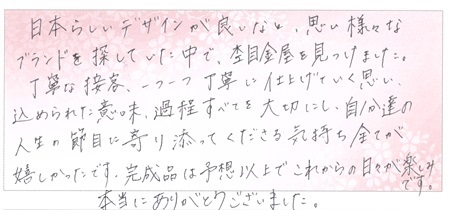 日本らしいデザインが良いなと、思い様々な
ブランドを探していた中で、杢目金屋を見つけました。
丁寧な接客、一つ一つ丁寧に仕上げていく思い、
込められた意味、過程すべてを大切にし、自分達の
人生の節目に寄り添ってくださる気持ち全てが
嬉しかったです。完成品は予想以上でこれからの日々が楽しみ
です。
本当にありがとうございました。